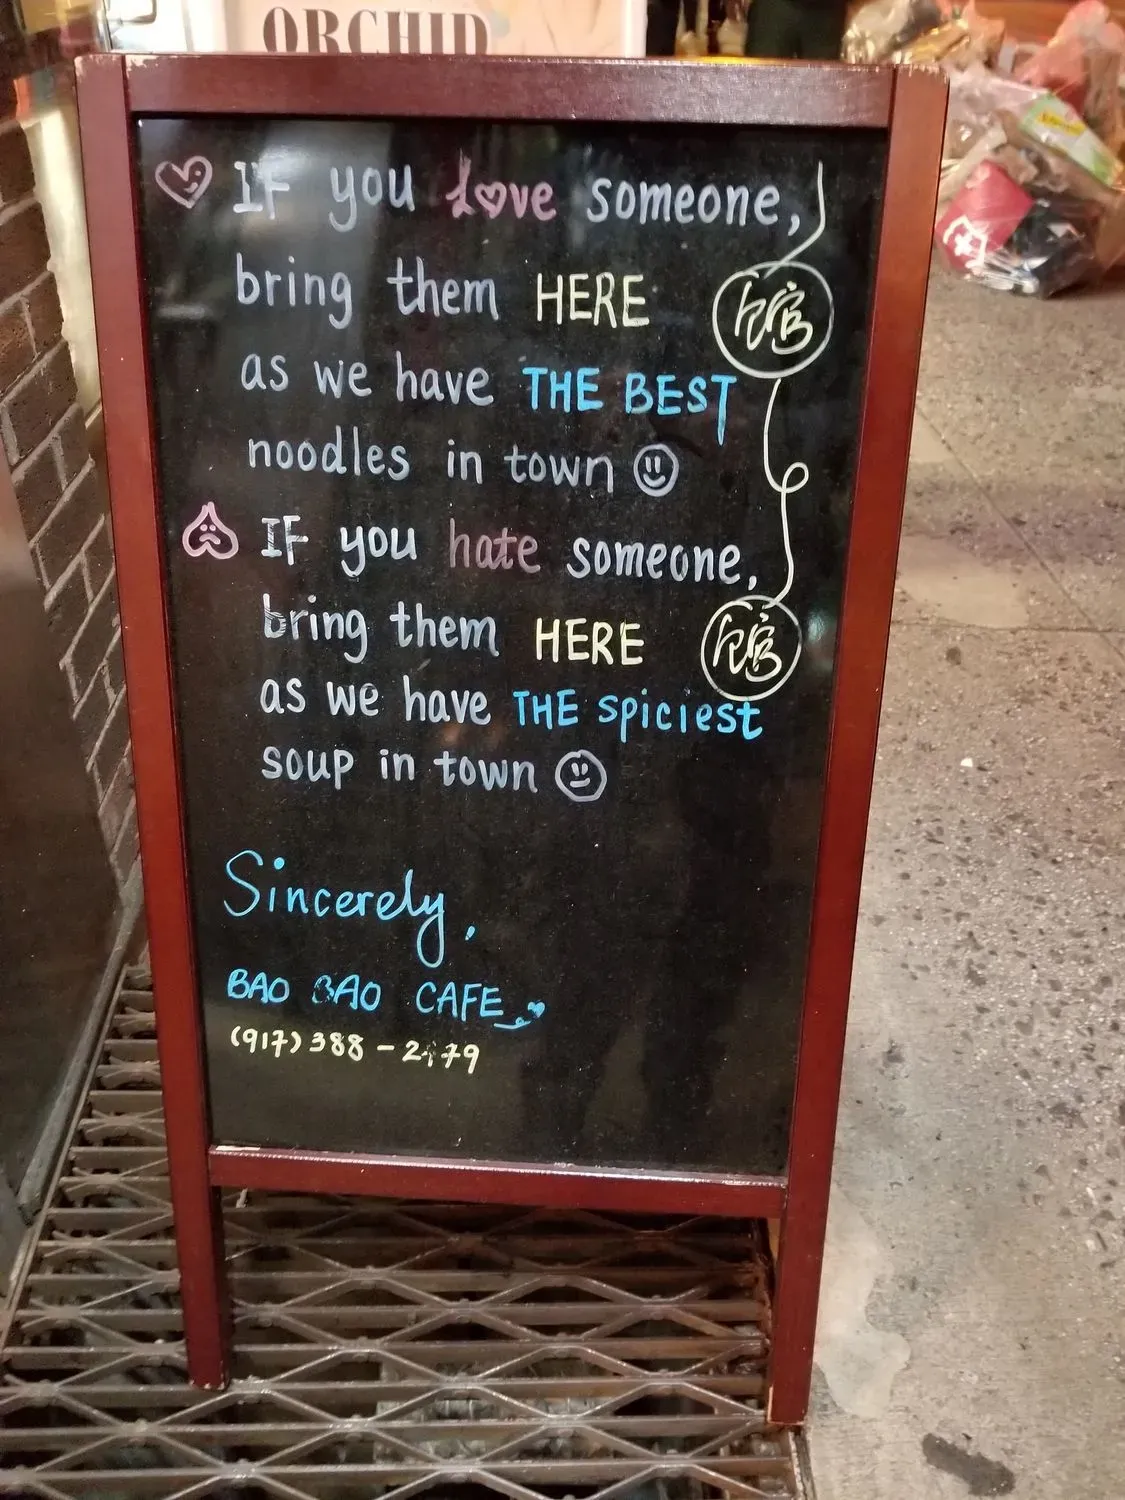 ORCHID
IF you Love someone,
bring them HERE
as we have THE BEST
noodles in town
IF you hate someone,
bring them HERE
as we have THE spiciest
soup in town
Sincerely,
BAO BAO CAFE
(917) 388 -